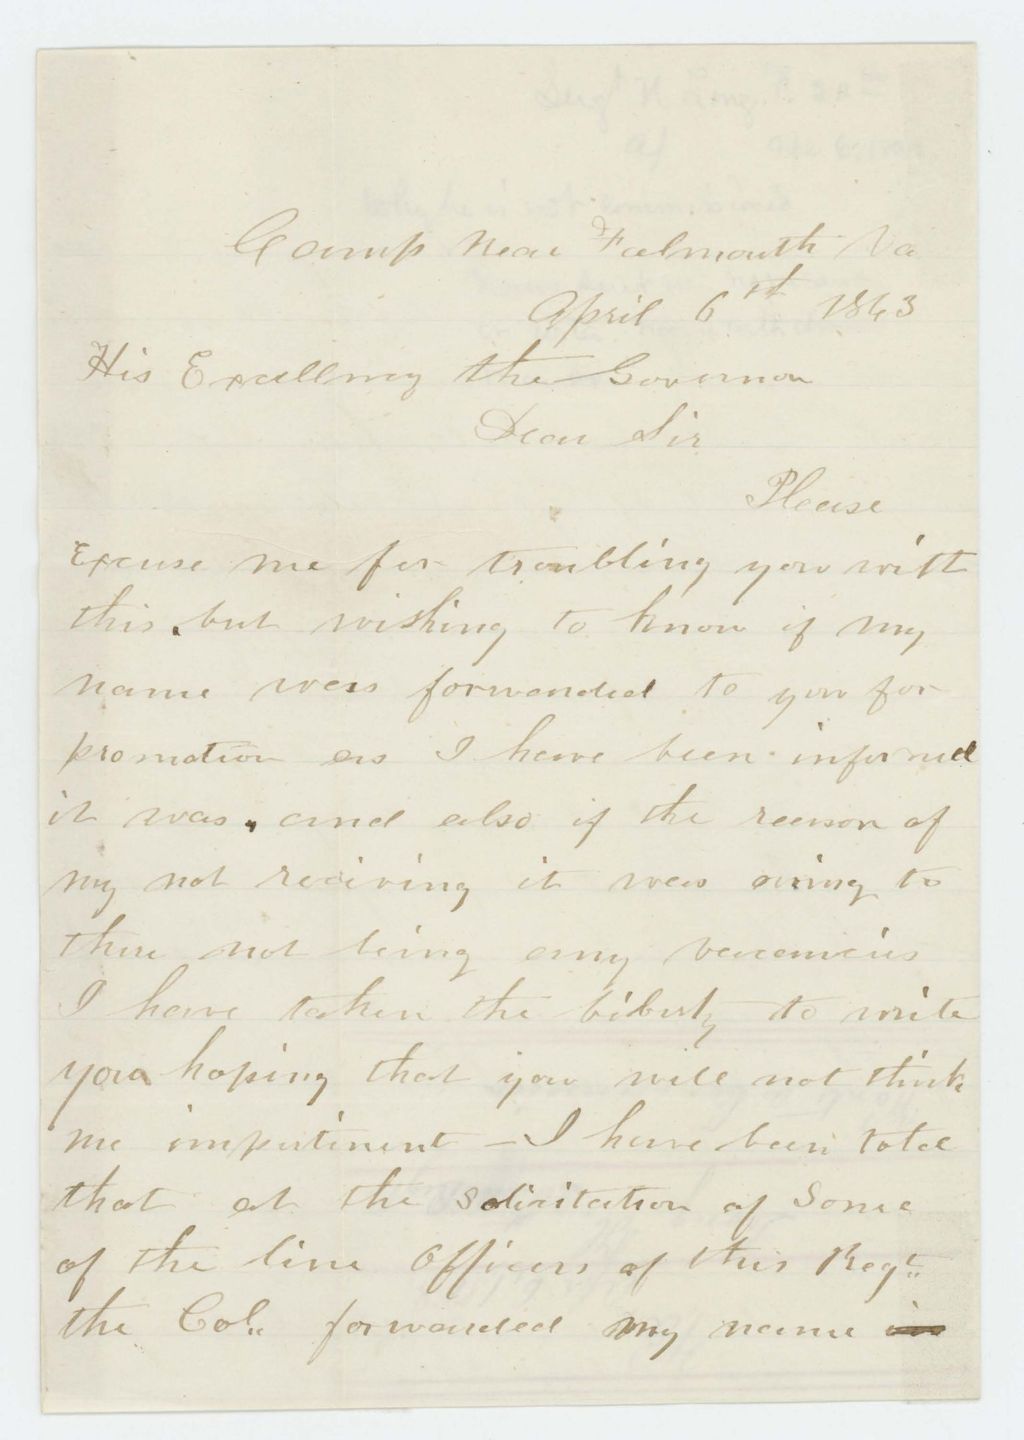 Camp Near Falmouth Va
April 6th 1863
His Excellency the Governor
Dear Sir
Please
Excuse me for troubling you with
this. but wishing to know if my
name was forwarded to you for
promotion as I have been informed
it was, and also if the reason of
my not reciving it was owing to
there not being any vacancies
I have taken the liberty to write
you hoping that you will not think
me impertinent - I have been told
that at the solicitation of Some
of the line Officers of this Regt.
the Col. forwarded my name